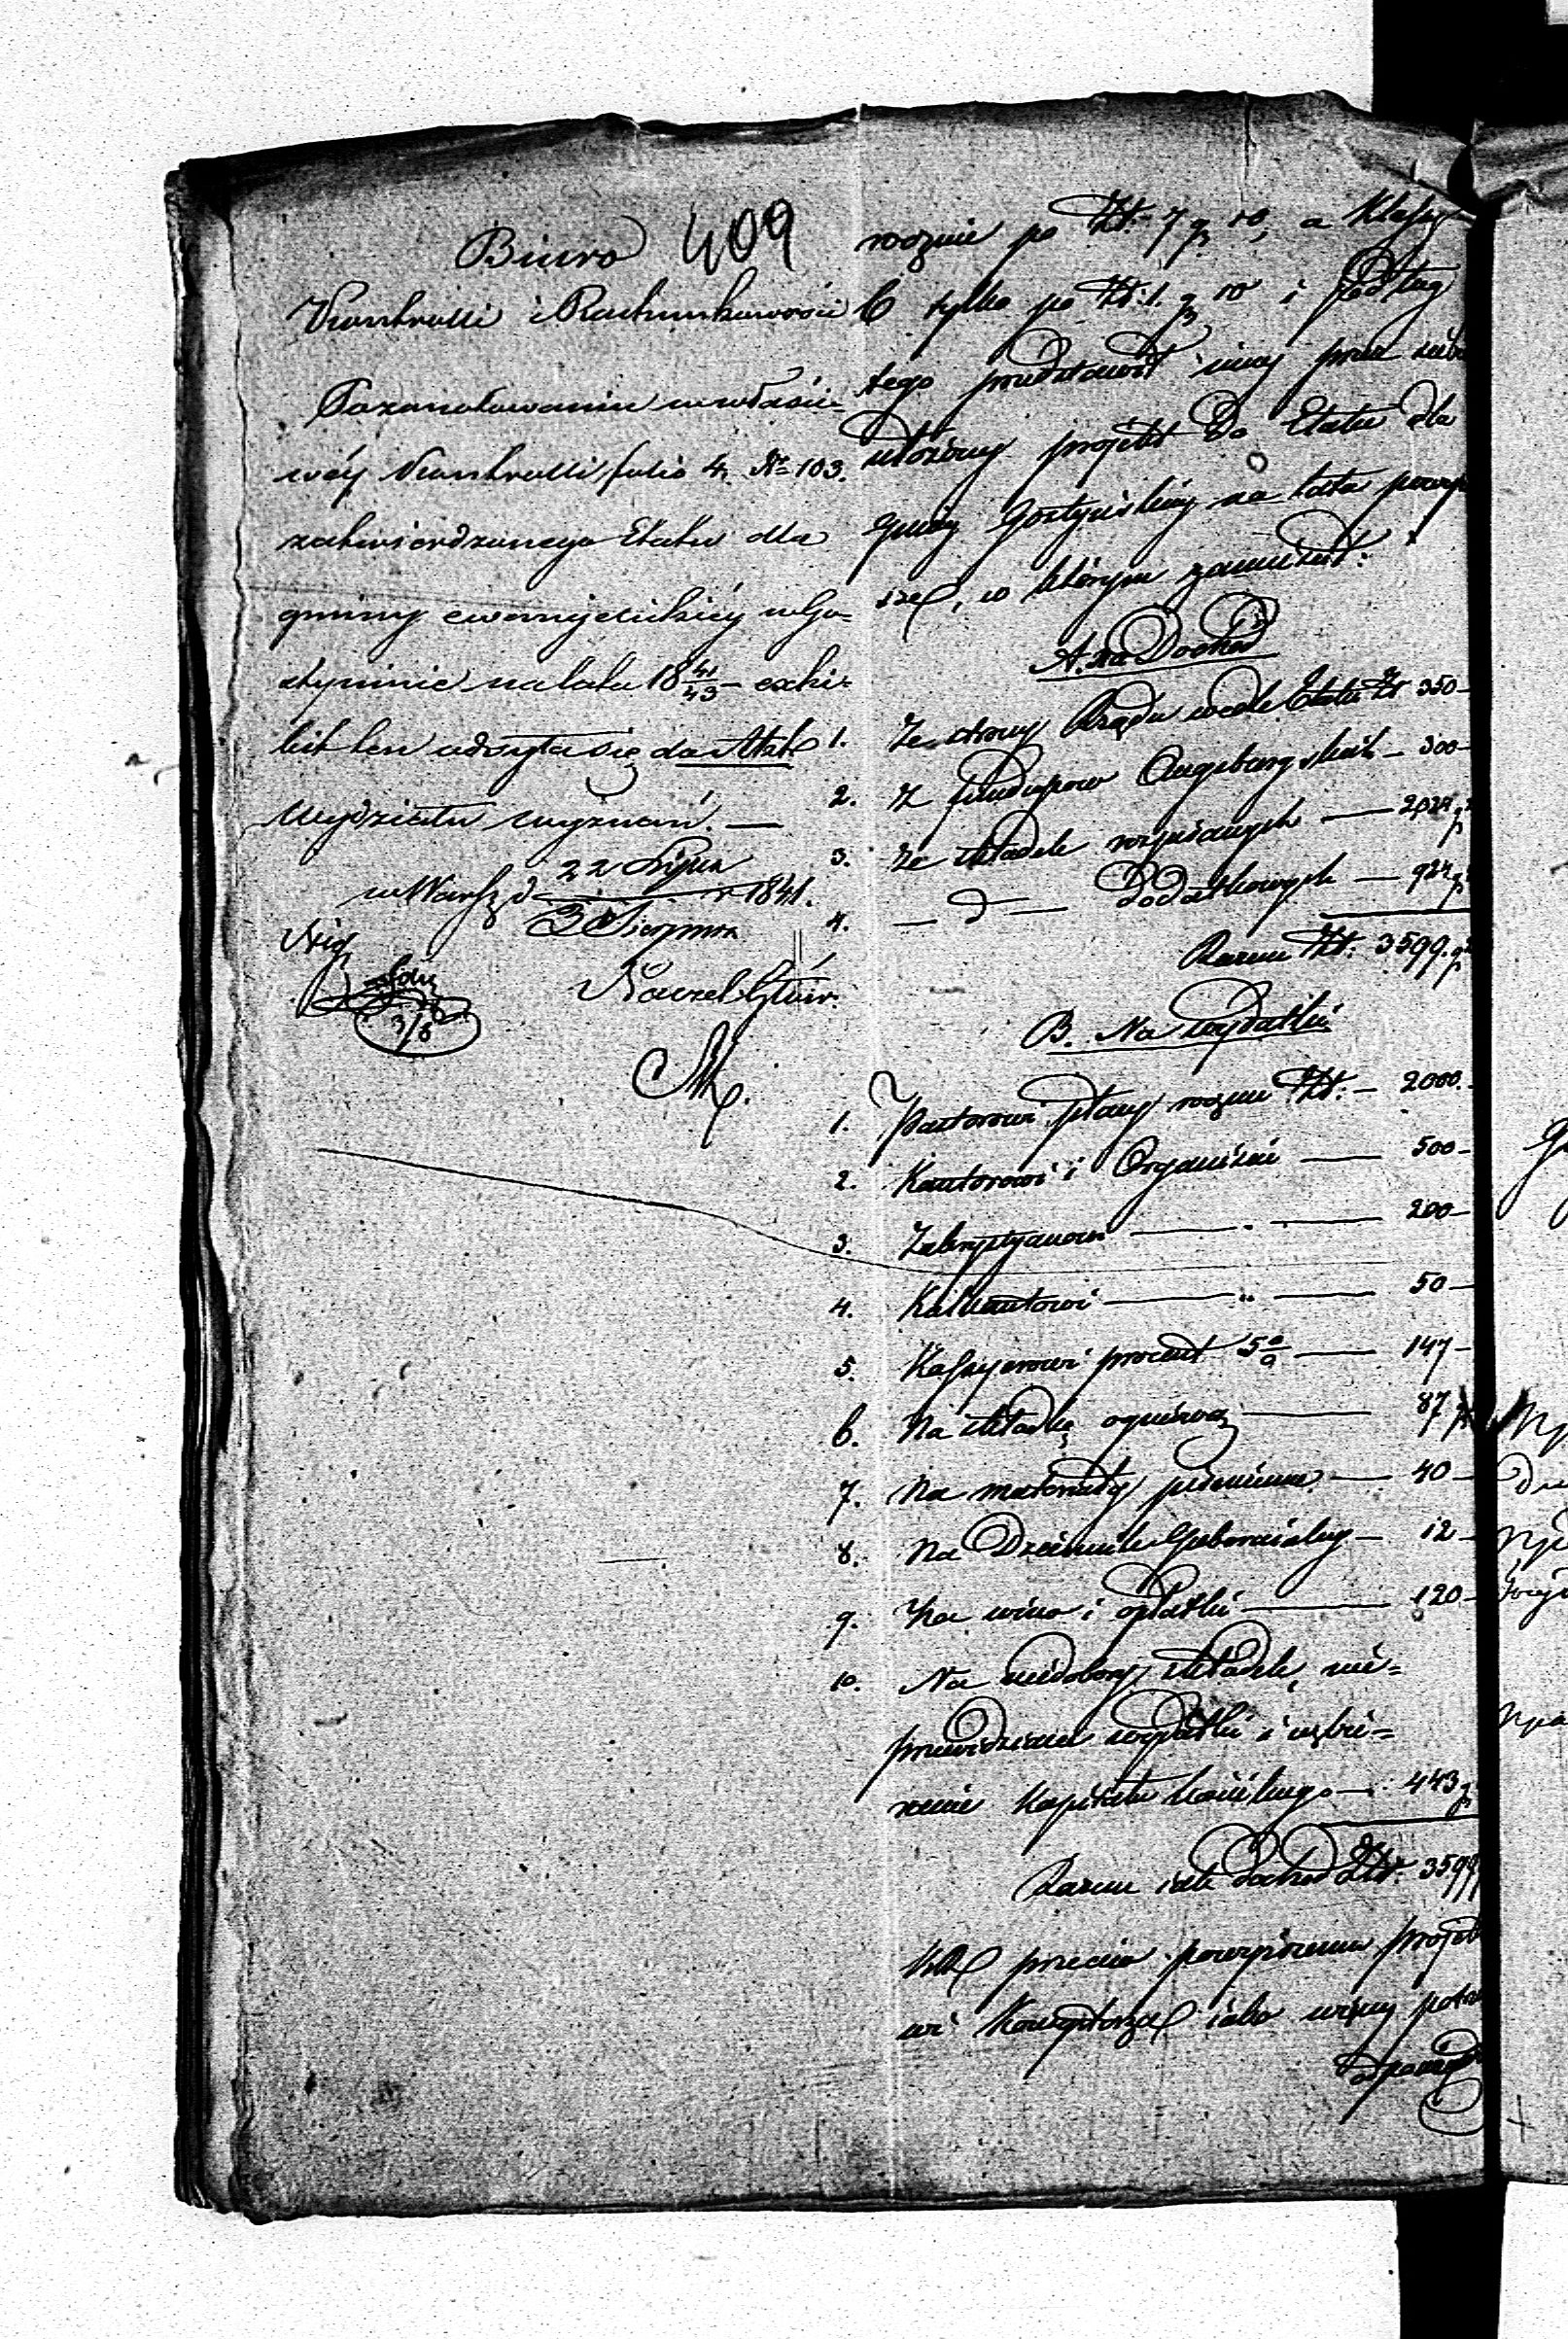 409
Biuro
Kontrolli i Rachunkowości
Pozanotowaniu w właści=
wéy Kontrolli folio 4. Nr 103.
zatwierdzonego Etatu dla
gminy ewanyelickiéy w Go=
styninie na lata 18 41/43 – exhi=
bit ten odsyła się do Akt
Wydziału wyznań. —
w Warsz. d 22 Lipca / 3 Sierpnia r 1841.
3/8
Naczel. Głów.
rocznie po Zł. 7 g 10, a Klassy
C tylko po Zł. 1. g 10 i podług
tego przedstawił inny przez siebie
ułożony projekt do Etatu dla
Gminy Gostyńskiey na lata powyż
sze, w którym zamieścił:
A. Na Dochód
1. Ze strony Rządu wedle Etatu Zł 350 –
2. Z funduszow Augsburgskich – 300 –
3. Ze składek rozpisanych — 2024 g
4. — d — Dodatkowych — 924 g
Razem Zł. 3599. g
B. Na wydatki
1. Pastorowi płacy rocznie Zł. – 2000. –
2. Kantorowi i Organiście — 500 –
3. Zakrystyanowi — " — 200 –
4. Kalikantowi — " — 50 –
5. Kassyerowi procent 5 0/0 — 147 –
6. Na składkę ogniową — 87
7. Na materiały piśmienne — 40 –
8. Na Dziennik Gubernialny – 12 –
9. Na wino i opłatki — 120 –
10. Na niedobory składek, nie=
przewidziane wydatki i uzbie=
ranie Kapitału kościelnego — 443 g
Razem iak dochód Zł. 3599
KR przeciw powyższemu projek
wi Konsystorza iako